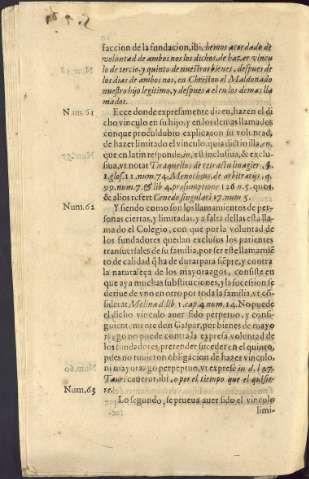 faccion de la fundacion, ibi: hemos acordado de
voluntad de ambos nos los dichos, de hazer vincu
lo de tercio, y quinto de nuestros bienes, despues de
los dias de ambos, en Christoual Maldonado
nuestro hijo legitimo, y despues a el en los demas lla
mados.
Num. 61
Ecce donde expresamente dizen, hazen el di
cho vinculo en su hijo, y en los demas llamados
con que procul dubio explicaron su voluntad,
de hazer limitado el vinculo, quia dictio illa, en,
que en latin responde in, est inclusiua, & exclu
siua, vt notat Tiraquellus de retractu lineagier, §.
1. glos. 11. num. 74. Menochius de arbitrarijs, q.
99. num. 7. & lib. 4. præsumptione 126 n. 5. quos,
& alios refert Cenedo singulari 17. num. 5.
Num. 62
Y siendo como son los llamamientos de per
sonas ciertas, y limitadas, y a falta dellas esta lla
mado el Colegio, con que por la voluntad de
los fundadores quedan exclusos los parientes
transuersales de su familia, por ser este llamamiẽ
to de calidad q̃ ha de durar para siẽpre, y contra
la naturaleça de los mayorazgos, consiste en
que aya muchas substituciones, y la sucession se
deriue de vno en otro por toda la familia, vt cõ
siderat, Molina d. lib. 1. cap. 4. num. 14. No puede
el dicho vinculo auer sido perpetuo, y consi
guientemente don Gaspar, por bienes de mayo
razgo no puede contra la expresa voluntad de
los fundadores, pretender suceder en el quinto,
pues no tuuieron obligacion de hazer vinculo,
ni mayorazgo perpetuo, vt expresse in d. l. 27.
Taur. cauetur, ibi, o por el tiempo que el quisie
re.
Num. 63
Lo segundo, se prueua auer sido el vinculo
limi-